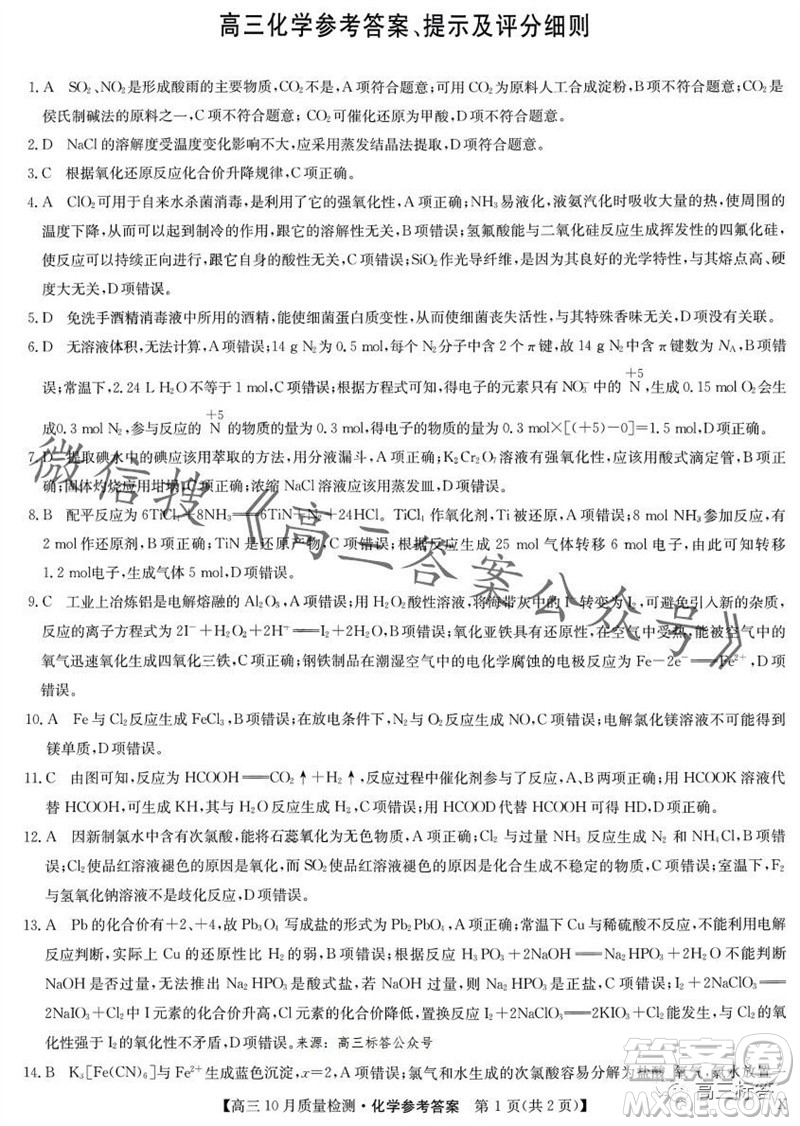 高三化学参考答案、提示及评分细则
1. A SO₂、NO₂是形成酸雨的主要物质,CO₂不是,A项符合题意;可用CO₂为原料人工合成淀粉,B项不符合题意;CO₂是
侯氏制碱法的原料之一,C项不符合题意;CO₂可催化还原为甲酸,D项不符合题意。
2. D NaCl的溶解度受温度变化影响不大,应用蒸发结晶法提取,D项符合题意。
3. C 根据氧化还原反应化合价升降规律,C项正确。
4. A ClO₂可用于自来水杀菌消毒,是利用了它的强氧化性,A项正确;NH₃易液化,液氨汽化时吸收大量的热,使环境的
温度下降,从而起到制冷的作用,跟它的溶解性无关,B项错误;氢氟酸能与二氧化硅反应生成挥发性的四氟化硅,
使反应可以持续正向进行,跟它自身的酸性无关,C项错误;SiO₂作光导纤维,是因为其良好的光学特性,与其熔点高、
硬度大无关,D项错误。
5. D 免洗手酒精消毒液中所用的酒精,能使细菌蛋白质变性,从而使细菌丧失活性,与其特殊香味无关,D项没有关联。
6. D 无溶液体积,无法计算,A项错误;14 g N₂为0.5 mol,每个N₂分子中含2个π键,故14 g N₂中含π键数为N_A,B项错
误;常温下,2.24 L H₂O不为1 mol,C项错误;根据方程式可知,得电子的元素只有NO₃⁻中的 N(+5),生成0.15 mol O₂会生
成0.3 mol N₂,参与反应的 N(+5) 的物质的量为0.3 mol,得电子的物质的量为0.3 mol×[(+5)-0]=1.5 mol,D项正确。
7. D 提取碘水中的碘应该用萃取的方法,用分液漏斗,A项错误;K₂Cr₂O₇溶液有强氧化性,应该用酸式滴定管,B项正
确;固体灼烧应用坩埚,C项正确;浓缩NaCl溶液应该用蒸发皿,D项正确。
8. B 配平反应为6TiCl₄+8NH₃══6TiN+N₂+24HCl。TiCl₄作氧化剂,Ti被还原,A项错误;8 mol NH₃参与反应,有
2 mol作还原剂,B项正确;TiN是还原产物,C项错误;根据反应生成25 mol气体转移6 mol电子,由此可知,转移
1.2 mol电子,生成气体5 mol,D项错误。
9. C 工业上冶炼铝是电解熔融的Al₂O₃,A项错误;用H₂O₂酸性溶液,将海带灰中的I⁻转变为I₂,可避免引入新的杂质,
反应的离子方程式为2I⁻+H₂O₂+2H⁺══I₂+2H₂O,B项错误;氧化亚铁具有还原性,在空气中受热,能被空气中的
氧气迅速氧化生成四氧化三铁,C项正确;钢铁制品在潮湿空气中的电化学腐蚀的电极反应为Fe-2e⁻══Fe²⁺,D项
错误。
10. A Fe与Cl₂反应生成FeCl₃,B项错误;在放电条件下,N₂与O₂反应生成NO,C项错误;电解氯化镁溶液不能得到
镁单质,D项错误。
11. C 由图可知,反应为HCOOH══CO₂↑+H₂↑,反应过程中催化剂参与了反应,A、B两项正确;用HCOOK溶液代
替HCOOH,可生成KH,其与水反应生成H₂,C项错误;用HCOOD代替HCOOH可得到HD,D项正确。
12. A 因新制氯水中含有次氯酸,能将石蕊氧化为无色物质,A项正确;Cl₂与过量NH₃反应生成N₂和NH₄Cl,B项错误;
Cl₂使品红溶液褪色的原因是氧化,而SO₂使品红溶液褪色的原因是生成不稳定的无色物质,C项错误;室温下,F₂
与氢氧化钠溶液的反应不是歧化反应,D项错误。
13. A Pb的化合价有+2、+4,故Pb₃O₄写成盐的形式为Pb₂PbO₄,A项正确;常温下Cu与稀硫酸不反应,不能利用电解
反应判断,实际上Cu的还原性比H₂的弱,B项错误;根据H₃PO₃+2NaOH══Na₂HPO₃+2H₂O不能判断
NaOH是否过量,无法推出Na₂HPO₃是酸式盐,事实上Na₂HPO₃是正盐,C项错误;I₂+2NaClO₃══Cl₂+
2NaIO₃+Cl₂中I元素的化合价升高,Cl元素的化合价降低,置换反应I₂+2NaClO₃══2KIO₃+Cl₂与Cl₂的氧化
性强于I₂的氧化性不矛盾,D项错误。来源:高三标答公众号
14. B K₃[Fe(CN)₆]与Fe²⁺生成蓝色沉淀,x=2,A项错误;氯气和水生成的次氯酸分解为盐酸、氧气,氯水放置
【高三10月质量检测·化学参考答案 第1页(共2页)】
微信搜《高三答案公众号》
答案圈
高三标答